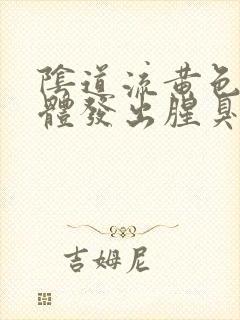 陰道流黃色
體發出腥臭
吉姆尼